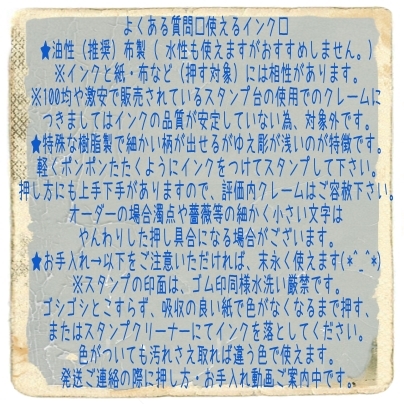 よくある質問□使えるインク□
★油性（推奨）布製（水性も使えますがおすすめしません。）
※インクと紙・布など（押す対象）には相性があります。
※100均や激安で販売されているスタンプ台の使用でのクレームに
つきましてはインクの品質が安定していない為、対象外です。
★特殊な樹脂製で細かい柄が出せるがゆえ彫が浅いのが特徴です。
軽くポンポンたたくようにインクをつけてスタンプして下さい。
押し方にも上手下手がありますので、評価内クレームはご容赦下さい。
オーダーの場合濁点や薔薇等の細かく小さい文字は
やんわりした押し具合になる場合がございます。
★お手入れ→以下をご注意いただければ、末永く使えます(*^_^*)
※スタンプの印面は、ゴム印同様水洗い厳禁です。
ゴシゴシとこすらず、吸収の良い紙で色がなくなるまで押す、
またはスタンプクリーナーにてインクを落としてください。
色がついても汚れさえ取れば違う色で使えます。
発送ご連絡の際に押し方・お手入れ動画ご案内中です。。